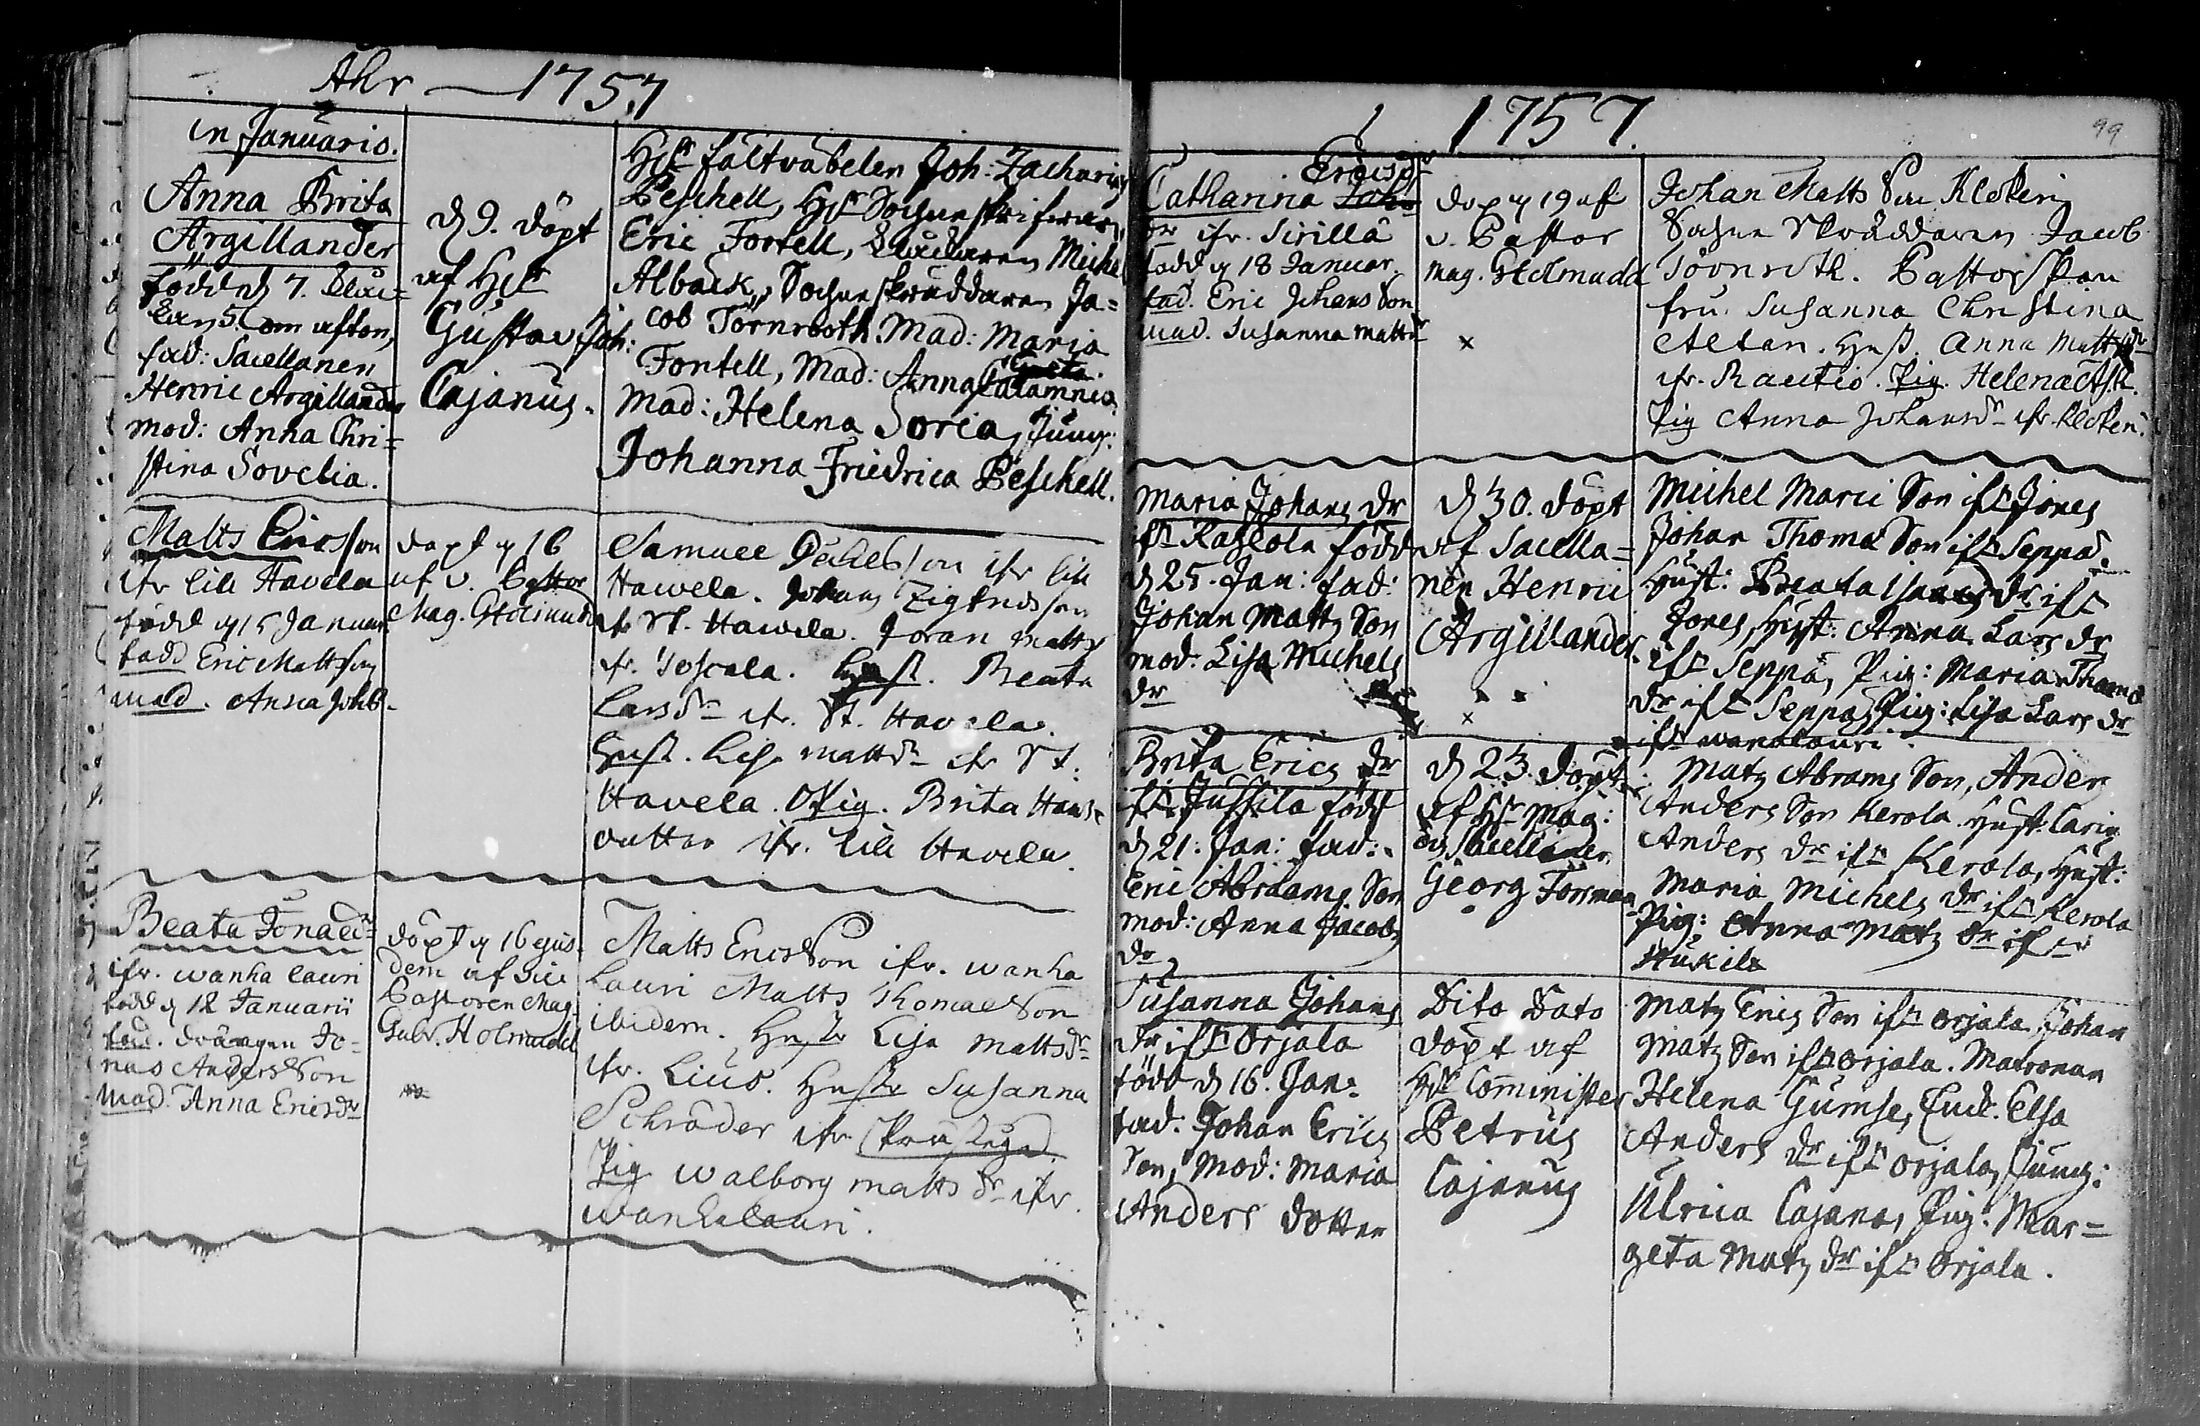 Åhr — 1757
in Januario.
Anna Brita
Argillander
född d 7. kluc=
kan 5 om afton,
fad: Sacellanen
Henric Argillander
mod: Anna Chri=
stina Sovelia.
d 9. döpt
af Hr
Gustav Joh:
Cajanus.
Hr fältväbelen Joh: Zacharias
Peschell, Hr Sochneskrifvaren
Eric Fortell, Michel
Alback, Sochneskräddaren Ja=
cob Törnrooth Mad: Maria
Fontell, Mad: Anna Greta Calamnia
Mad: Helena Soria, Jung:
Johanna Friedrica Peschell.
Matts Ericsson
ifr lill Havela
född d 15 Januar
fadd Eric Mattsson
mad. Anna Joh
döpt d 16
af v. Pastor
Mag. G Holmudd
Samuel ifr lill
Hawela. Johans Zigfridsson
ifr St. Hawela. Joran Matts
ifr. Toscala. Hust. Beata
Larsdr ifr. St. Havela.
Hust. Lisa Mattsdr ifr St.
Havela. Pig. Brita Hans
dotter ifr. lill Havela.
Beata Jonaedr
ifr. wanha lauri
född d 12 Januarii
fad. drängen Jo-
nas Andersson
Mad. Anna Ericsdr
döpt d 16 ejus-
dem af vice
Pastoren Mag.
Gabr. Holmudd
Matts Ericsson ifr. wanha
lauri Matts Thomaeson
ibidem. Hustr Lisa mattsdr
ifr. Lius. Hustr Susanna
Schröder ifr.
Pig walborg mattsdr ifr.
wanhalauri.
1757.
99
Ericsdr
Catharina Joha
dr ifr. Sirillä
född d 18 Januar
fad. Eric Johans Son
mad. Susanna mattsdr
döpt d 19 af
v. Pastor
mag. G Holmudd
x
Johan Matts Son Klokeri
Sochne Skräddaren Jacob
Törnroth. Pastorskan
fru. Susanna Christina
Aetan. Hust. Anna Mattsdr
ifr. Rautio. Pig. Helena
Pig Anna Johansdr ifr. kloken.
Maria Johans dr
ifr Kaszola född
d 25. Jan: fad:
Johan Matts Son
mod: Lisa Michels
dr
d 30. döpt
af Sacella=
nen Henric
Argillander.
x
Michel Marci Son ifr Jones
Johan Thomae Son ifr Seppä.
Hust: Beata dr ifr
Jones, Hust: Anna Lars dr
ifr Seppä, Pig: Maria Thomae
dr ifr Seppä, Pig: Lisa Lars dr
ifr wanalauri.
Brita Erics dr
ifr Jussila född
d 21. Jan: fad:
Eric Abrahams Son
mod: Anna Jacobs
dr
d 23. döpt
af Hr Mag:
och Sacellanen
Georg Forsman
Matz Abrams Son, Anders
Anders Son Kerola. Hust: Carin
Anders dr ifr Kerola, Hust:
Maria Michels dr ifr Kerola
Pig: Anna Matz dr ifr
Hukila
Susanna Johans
dr ifr Orjala
född d 16. Jan:
fad. Johan Erics
Son, Mod: Maria
Anders dotter
Dito Dato
döpt af
Hr Comminister
Petrus
Cajanus
Matz Erics Son ifr Orjala, Johan
Matz Son ifr Orjala. Matronan
Helena Gumse, Enck. Elsa
Anders dr ifr Orjala, Jung:
Ulrica Cajana, Pig. Mar=
geta Matz dr ifr Orjala.